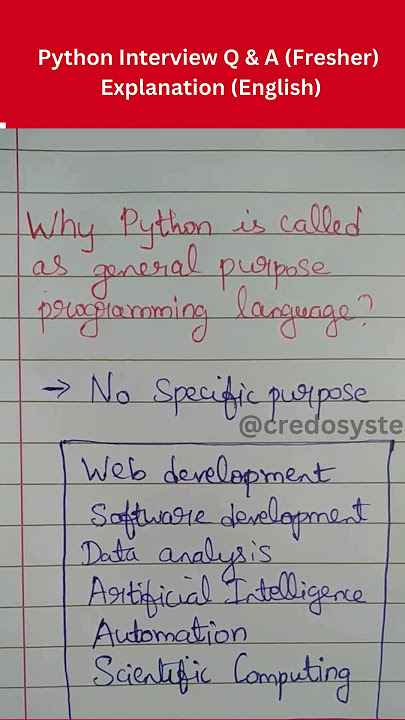 Python Interview Q & A (Fresher)
Explanation (English)
Why Python is called
as general purpose
programming language?
→ No Specific purpose
@credosyste
Web development
Software development
Data analysis
Artificial Intelligence
Automation
Scientific Computing